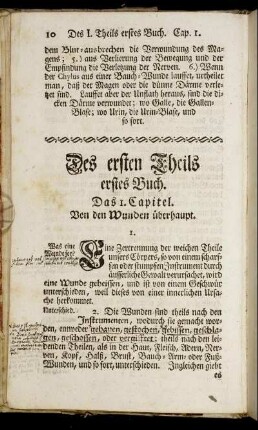 10 Des I. Theils erstes Buch. Cap. 1.
dem Blut-ausbrechen die Verwundung des Ma-
gens; 5.) aus Verlierung der Bewegung und der
Empfindung die Verletzung der Nerven. 6.) Wenn
der Chylus aus einer Bauch-Wunde laufft, urtheilet
man, daß der Magen oder die dünne Därme verle-
tzet sind. Lauffet aber der Unflath heraus, sind die di-
cken Därme verwundet; wo Galle, die Gallen-
Blase; wo Urin, die Urin-Blase, und
so fort.
Des ersten Theils
erstes Buch.
Das 1. Capitel.
Von den Wunden überhaupt.
1.
Was eine
Wunde sey:
Eine Zertrennung der weichen Theile
unsers Cörpers, so von einem scharf-
fen oder stumpffen Instrument durch
äusserliche Gewalt verursachet, wird
eine Wunde geheissen, und ist von einem Geschwür
unterschieden, weil dieses von einer innerlichen Ursa-
che herkommet.
Unterschied.
2. Die Wunden sind theils nach den
Instrumenten, wodurch sie gemacht wor-
den, entweder gehauen, gestochen, gebissen, geschla-
gen, geschossen, oder vergifftet: theils nach den lei-
denden Theilen, als in der Haut, Fleisch, Adern, Ner-
ven, Kopf, Halß, Brust, Bauch-Arm- oder Fuß-
Wunden, und so fort, unterschieden. Ingleichen giebt
es